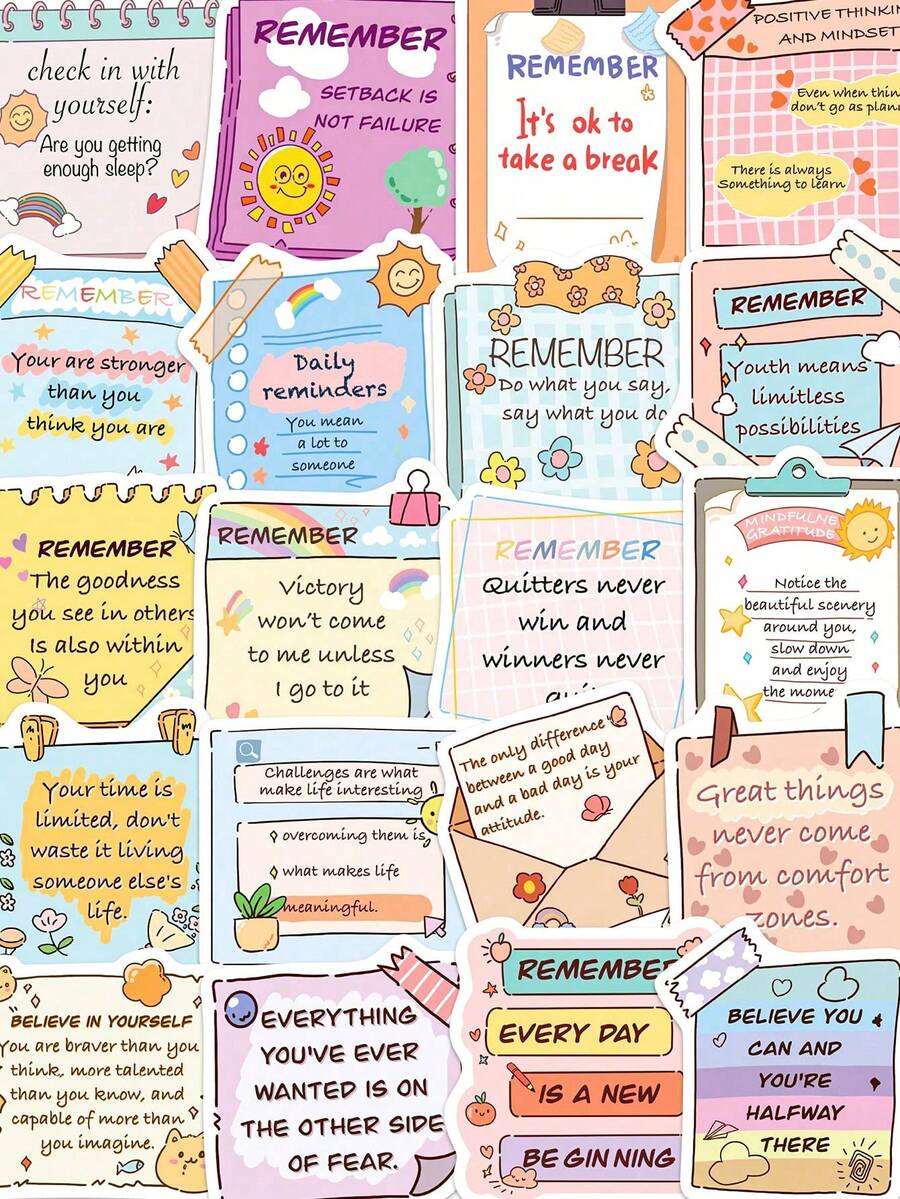 check in with
yourself:
Are you getting
enough sleep?
REMEMBER
SETBACK IS
NOT FAILURE
REMEMBER
It's ok to
take a break
POSITIVE THINKIN
AND MINDSET
Even when thin
don't go as plan
There is always
Something to learn
REMEMBER
Your are stronger
than you
think you are
Daily
reminders
You mean
a lot to
someone
REMEMBER
Do what you say,
say what you do
REMEMBER
Youth means
limitless
possibilities
REMEMBER
The goodness
you see in others
Is also within
you
REMEMBER
Victory
won't come
to me unless
I go to it
REMEMBER
Quitters never
win and
winners never
MINDFULNE
GRATITUDE
Notice the
beautiful scenery
around you,
slow down
and enjoy
the mome
Your time is
limited, don't
waste it living
someone else's
life.
Challenges are what
make life interesting
overcoming them is
what makes life
meaningful.
The only difference
between a good day
and a bad day is your
attitude.
Great things
never come
from comfort
zones.
BELIEVE IN YOURSELF
You are braver than you
think, more talented
than you know, and
capable of more than
you imagine.
EVERYTHING
YOU'VE EVER
WANTED IS ON
THE OTHER SIDE
OF FEAR.
REMEMBER
EVERY DAY
IS A NEW
BEGINNING
BELIEVE YOU
CAN AND
YOU'RE
HALFWAY
THERE